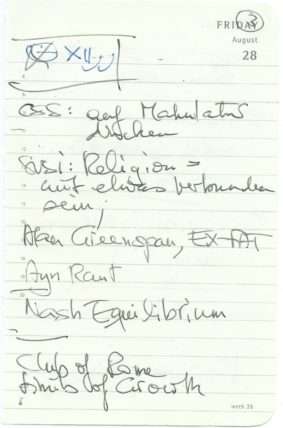 FRIDAY 3
August
28
XII
css: auf Makulatur
drucken
Sisi: Religion =
mit etwas verbunden
sein!
Alan Greenspan, EX-PAT
Ayn Rant
Nash Equilibrium
Club of Rome
Limits of Growth
week 35